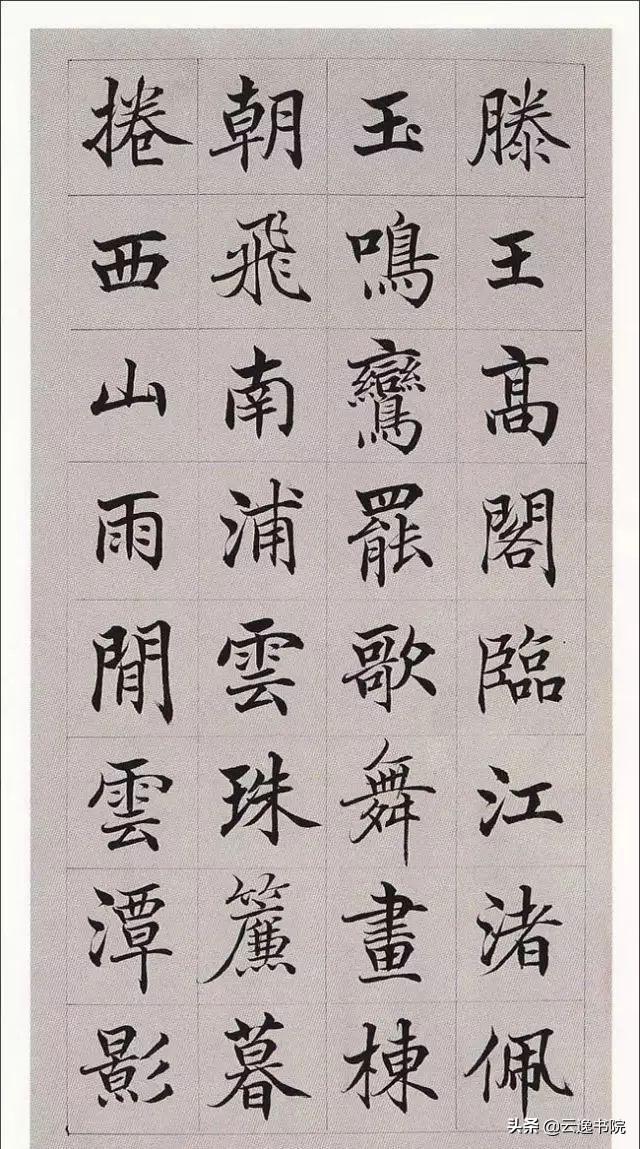 滕王高閣臨江渚佩
玉鳴鸞罷歌舞畫棟
朝飛南浦雲珠簾暮
捲西山雨閒雲潭影
头条 @云逸书院